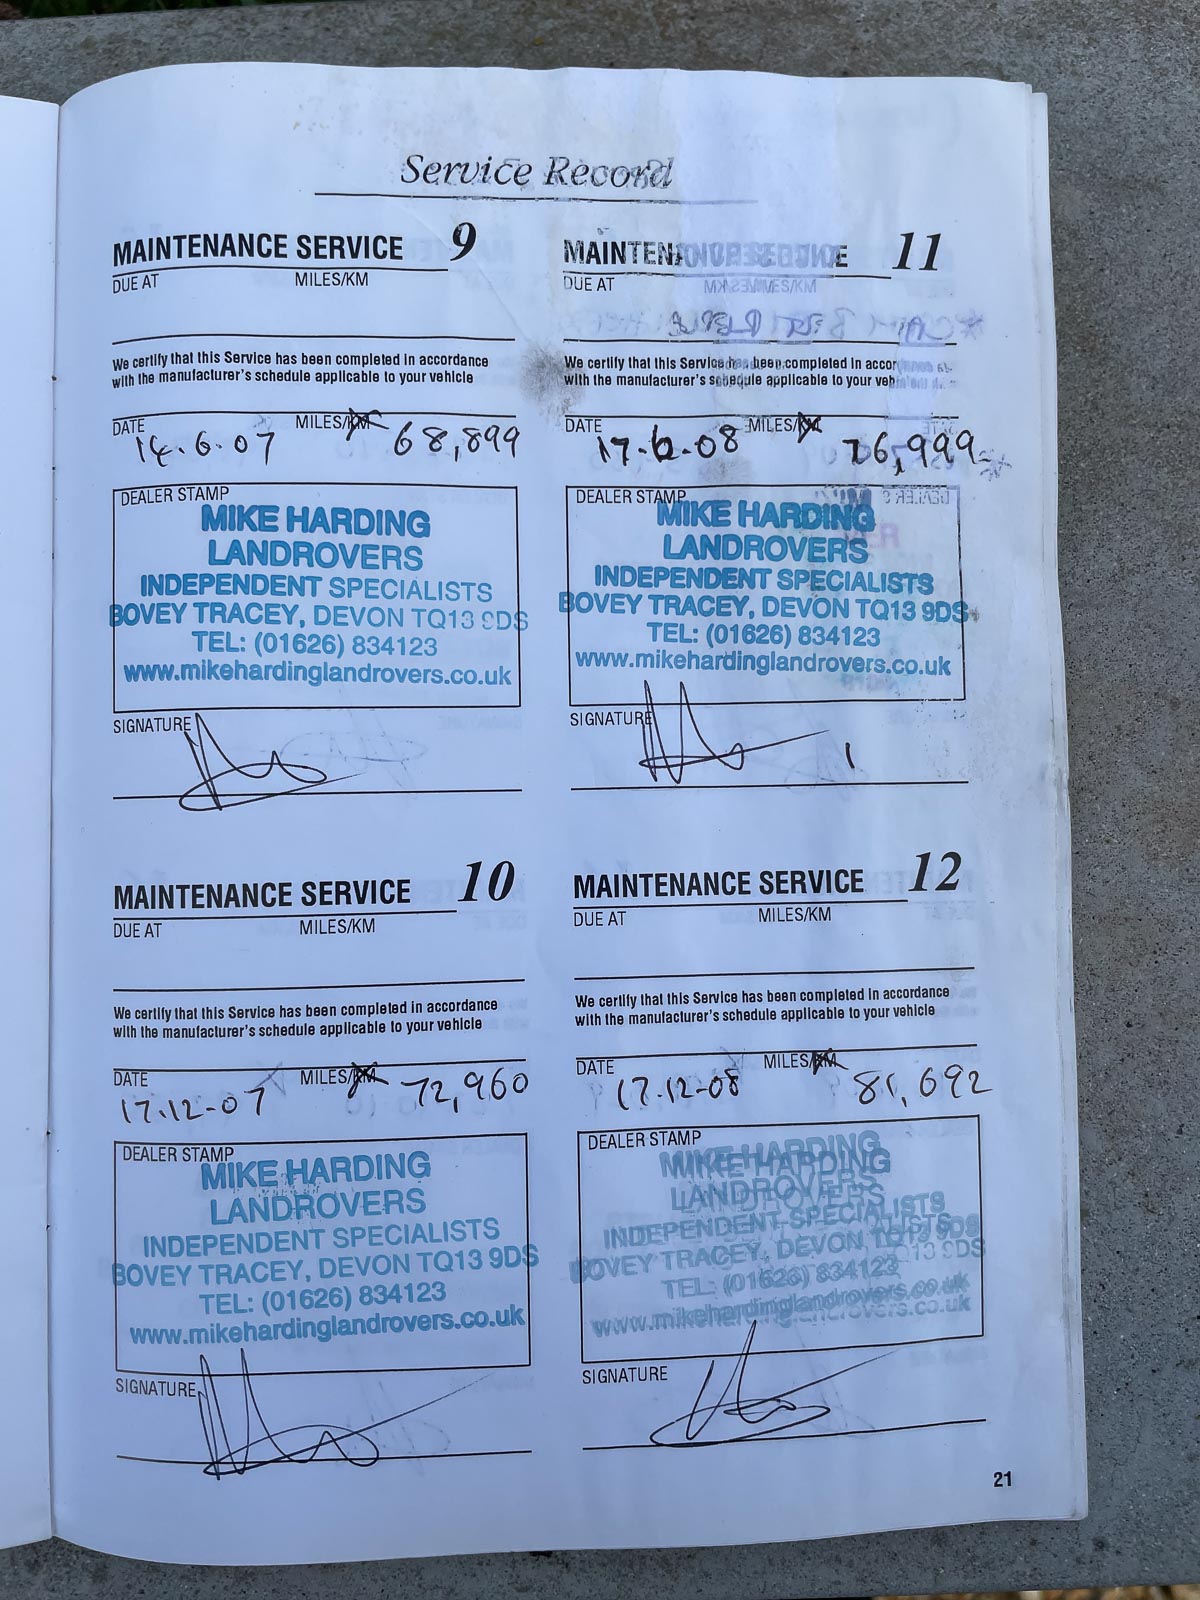 Service Record
MAINTENANCE SERVICE 9
DUE AT MILES/KM
We certify that this Service has been completed in accordance
with the manufacturer's schedule applicable to your vehicle
DATE MILES/KM
14.6.07 68,899
DEALER STAMP
MIKE HARDING
LANDROVERS
INDEPENDENT SPECIALISTS
BOVEY TRACEY, DEVON TQ13 9DS
TEL: (01626) 834123
www.mikehardinglandrovers.co.uk
SIGNATURE
MAINTENANCE SERVICE 10
DUE AT MILES/KM
We certify that this Service has been completed in accordance
with the manufacturer's schedule applicable to your vehicle
DATE MILES/KM
17.12-07 72,960
DEALER STAMP
MIKE HARDING
LANDROVERS
INDEPENDENT SPECIALISTS
BOVEY TRACEY, DEVON TQ13 9DS
TEL: (01626) 834123
www.mikehardinglandrovers.co.uk
SIGNATURE
MAINTENANCE SERVICE 11
DUE AT MILES/KM
We certify that this Service has been completed in
with the manufacturer's schedule applicable to your
DATE MILES/KM
17.6.08 76,999
DEALER STAMP
MIKE HARDING
LANDROVERS
INDEPENDENT SPECIALISTS
BOVEY TRACEY, DEVON TQ13 9DS
TEL: (01626) 834123
www.mikehardinglandrovers.co.uk
SIGNATURE
MAINTENANCE SERVICE 12
DUE AT MILES/KM
We certify that this Service has been completed in accordance
with the manufacturer's schedule applicable to your vehicle
DATE MILES/KM
17.12-08 81,692
DEALER STAMP
MIKE HARDING
LANDROVERS
INDEPENDENT SPECIALISTS
BOVEY TRACEY, DEVON TQ13 9DS
TEL: (01626) 834123
www.mikehardinglandrovers.co.uk
SIGNATURE
21